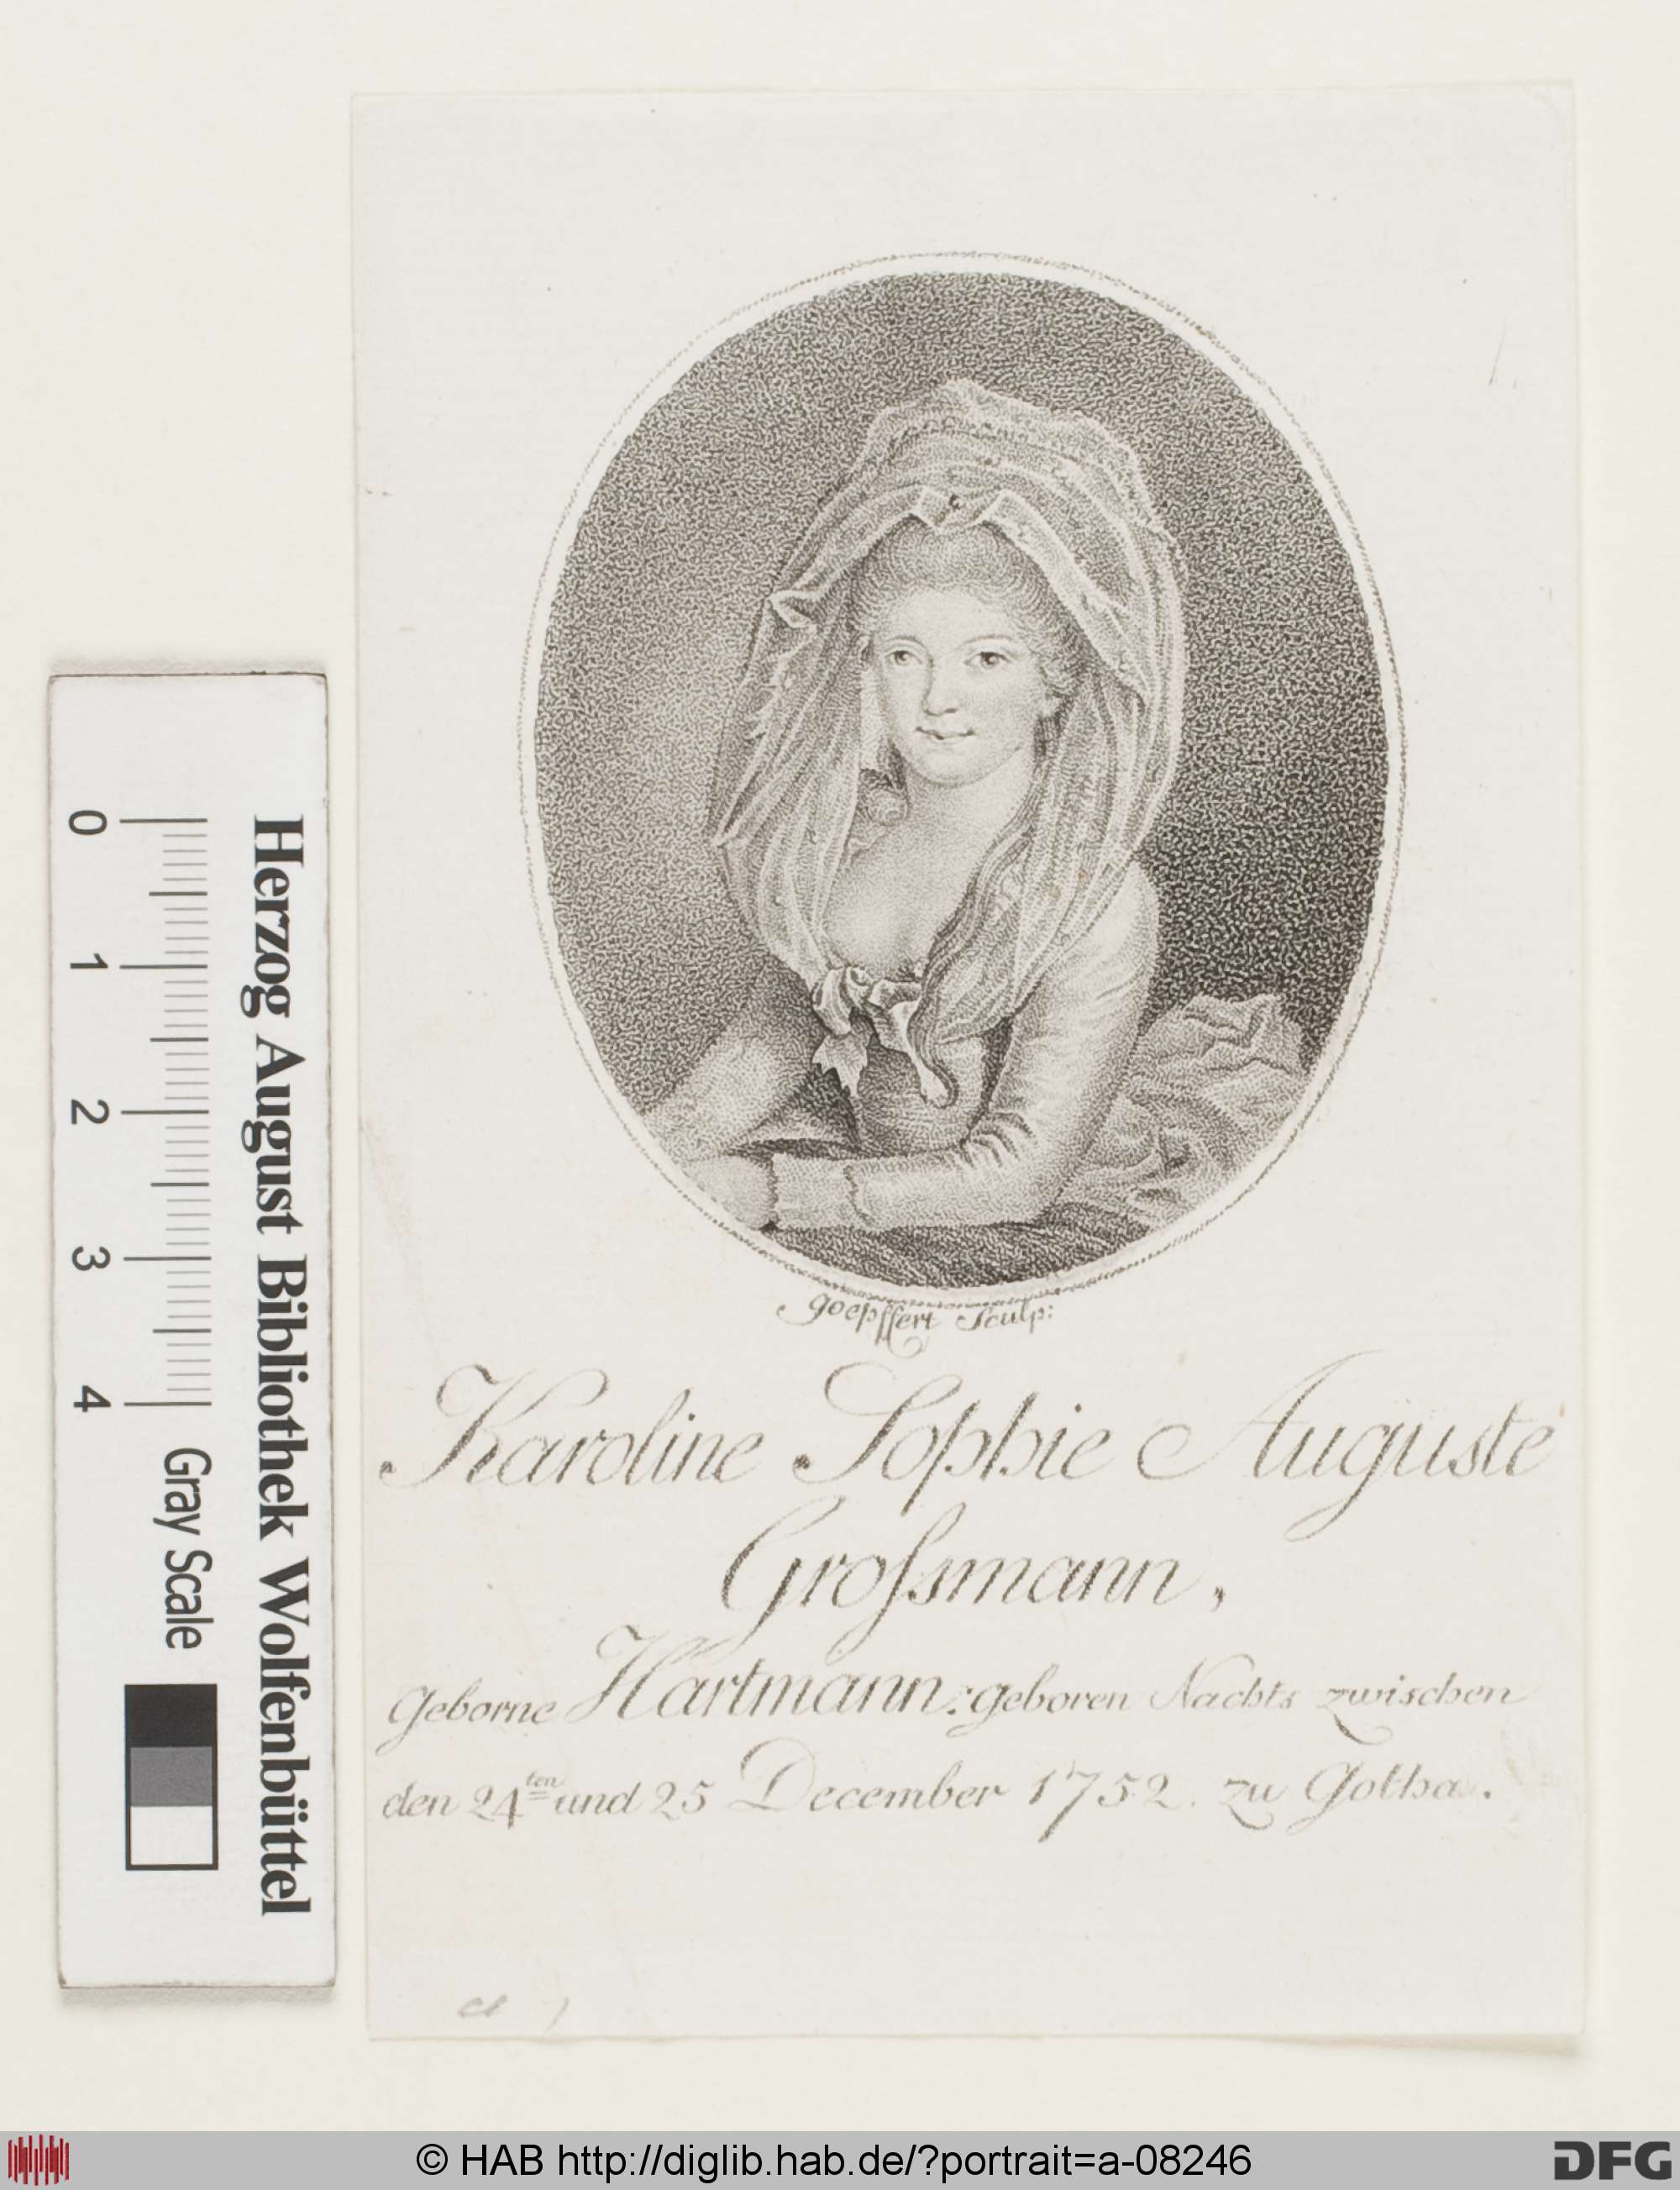 goepffert Sculp:
Karoline Sophie Auguste
Groſsmann,
Geborne Hartmann: geboren Nachts zwischen
den 24ten und 25 December 1752. zu Gotha.
Herzog August Bibliothek Wolfenbüttel
0 1 2 3 4 Gray Scale
© HAB http://diglib.hab.de/?portrait=a-08246
DFG